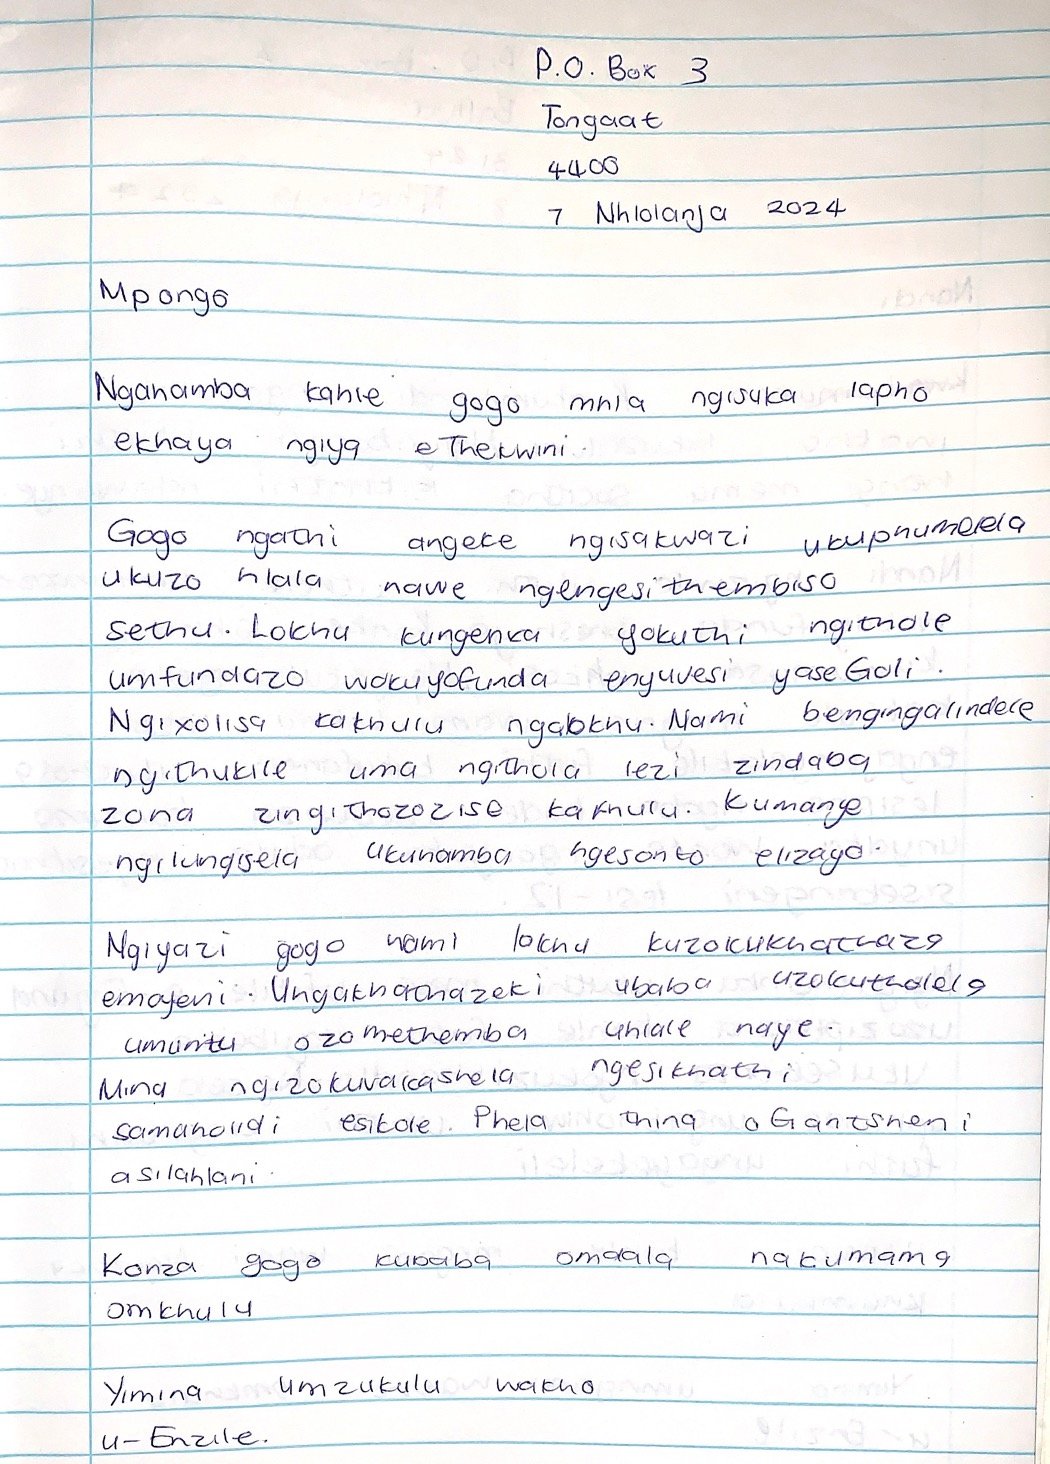 P.O. Box 3
Tongaat
4400
7 Nhlolanja 2024
Mpongo
Ngahamba kahle gogo mhla ngisuka lapho
ekhaya ngiya eThekwini.
Gogo ngathi angeke ngisakwazi ukuphumelela
ukuzo hlala nawe ngengesithembiso
sethu. Lokhu kungenxa yokuthi ngithole
umfundazo wokuyofunda enyuvesi yaseGoli.
Ngixolisa kakhulu ngalokhu. Nami bengingalindele
ngithukile uma ngithola lezi zindaba
zona zingithozozise kakhulu. Kumanje
ngilungisela ukuhamba ngesonto elizayo.
Ngiyazi gogo nami lokhu kuzokukhathaza
emoyeni. Ungakhathazeki ubaba uzokutholela
umuntu ozomethemba uhlale naye.
Mina ngizokuvakashela ngesikhathi
samaholidi esikole. Phela thina oGantsheni
asilahlani.
Konza gogo kubaba omdala nakumama
omkhulu
Yimina umzukulu wakho
u-Enzile.